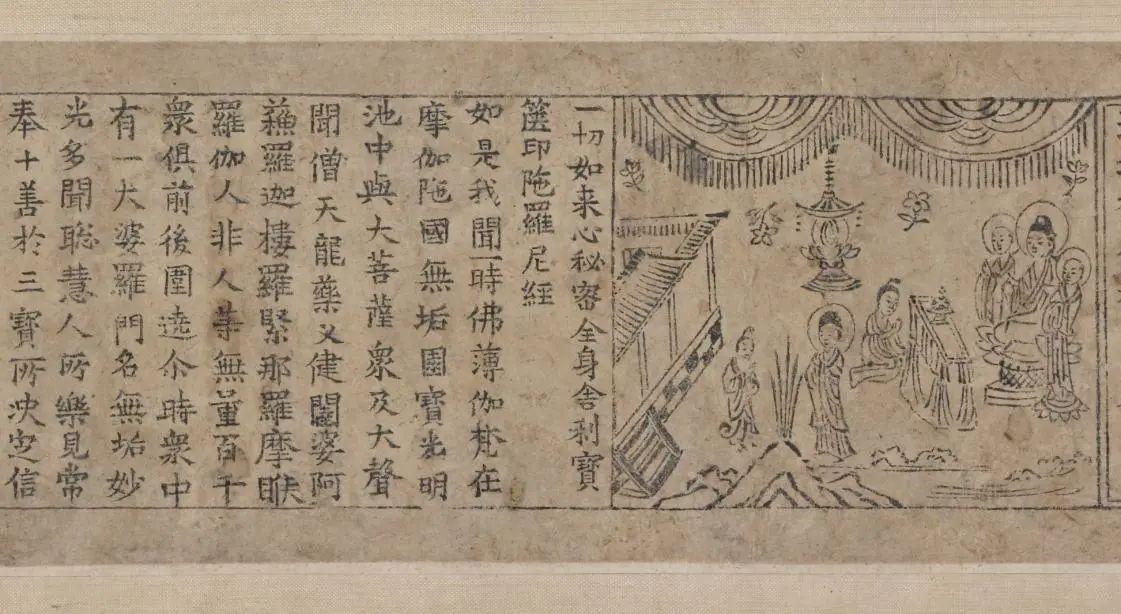 一切如来心秘密全身舎利寶
篋印陁羅尼經
如是我聞一時佛薄伽梵在
摩伽陁國無垢園寶光明
池中與大菩薩衆及大聲
聞僧天龍藥叉健闥婆阿
蘓羅迦樓羅緊那羅摩睺
羅伽人非人等無量百千
衆俱前後圍遶尒時衆中
有一大婆羅門名無垢妙
光多聞聡慧人所樂見常
奉十善於三寶所决定信